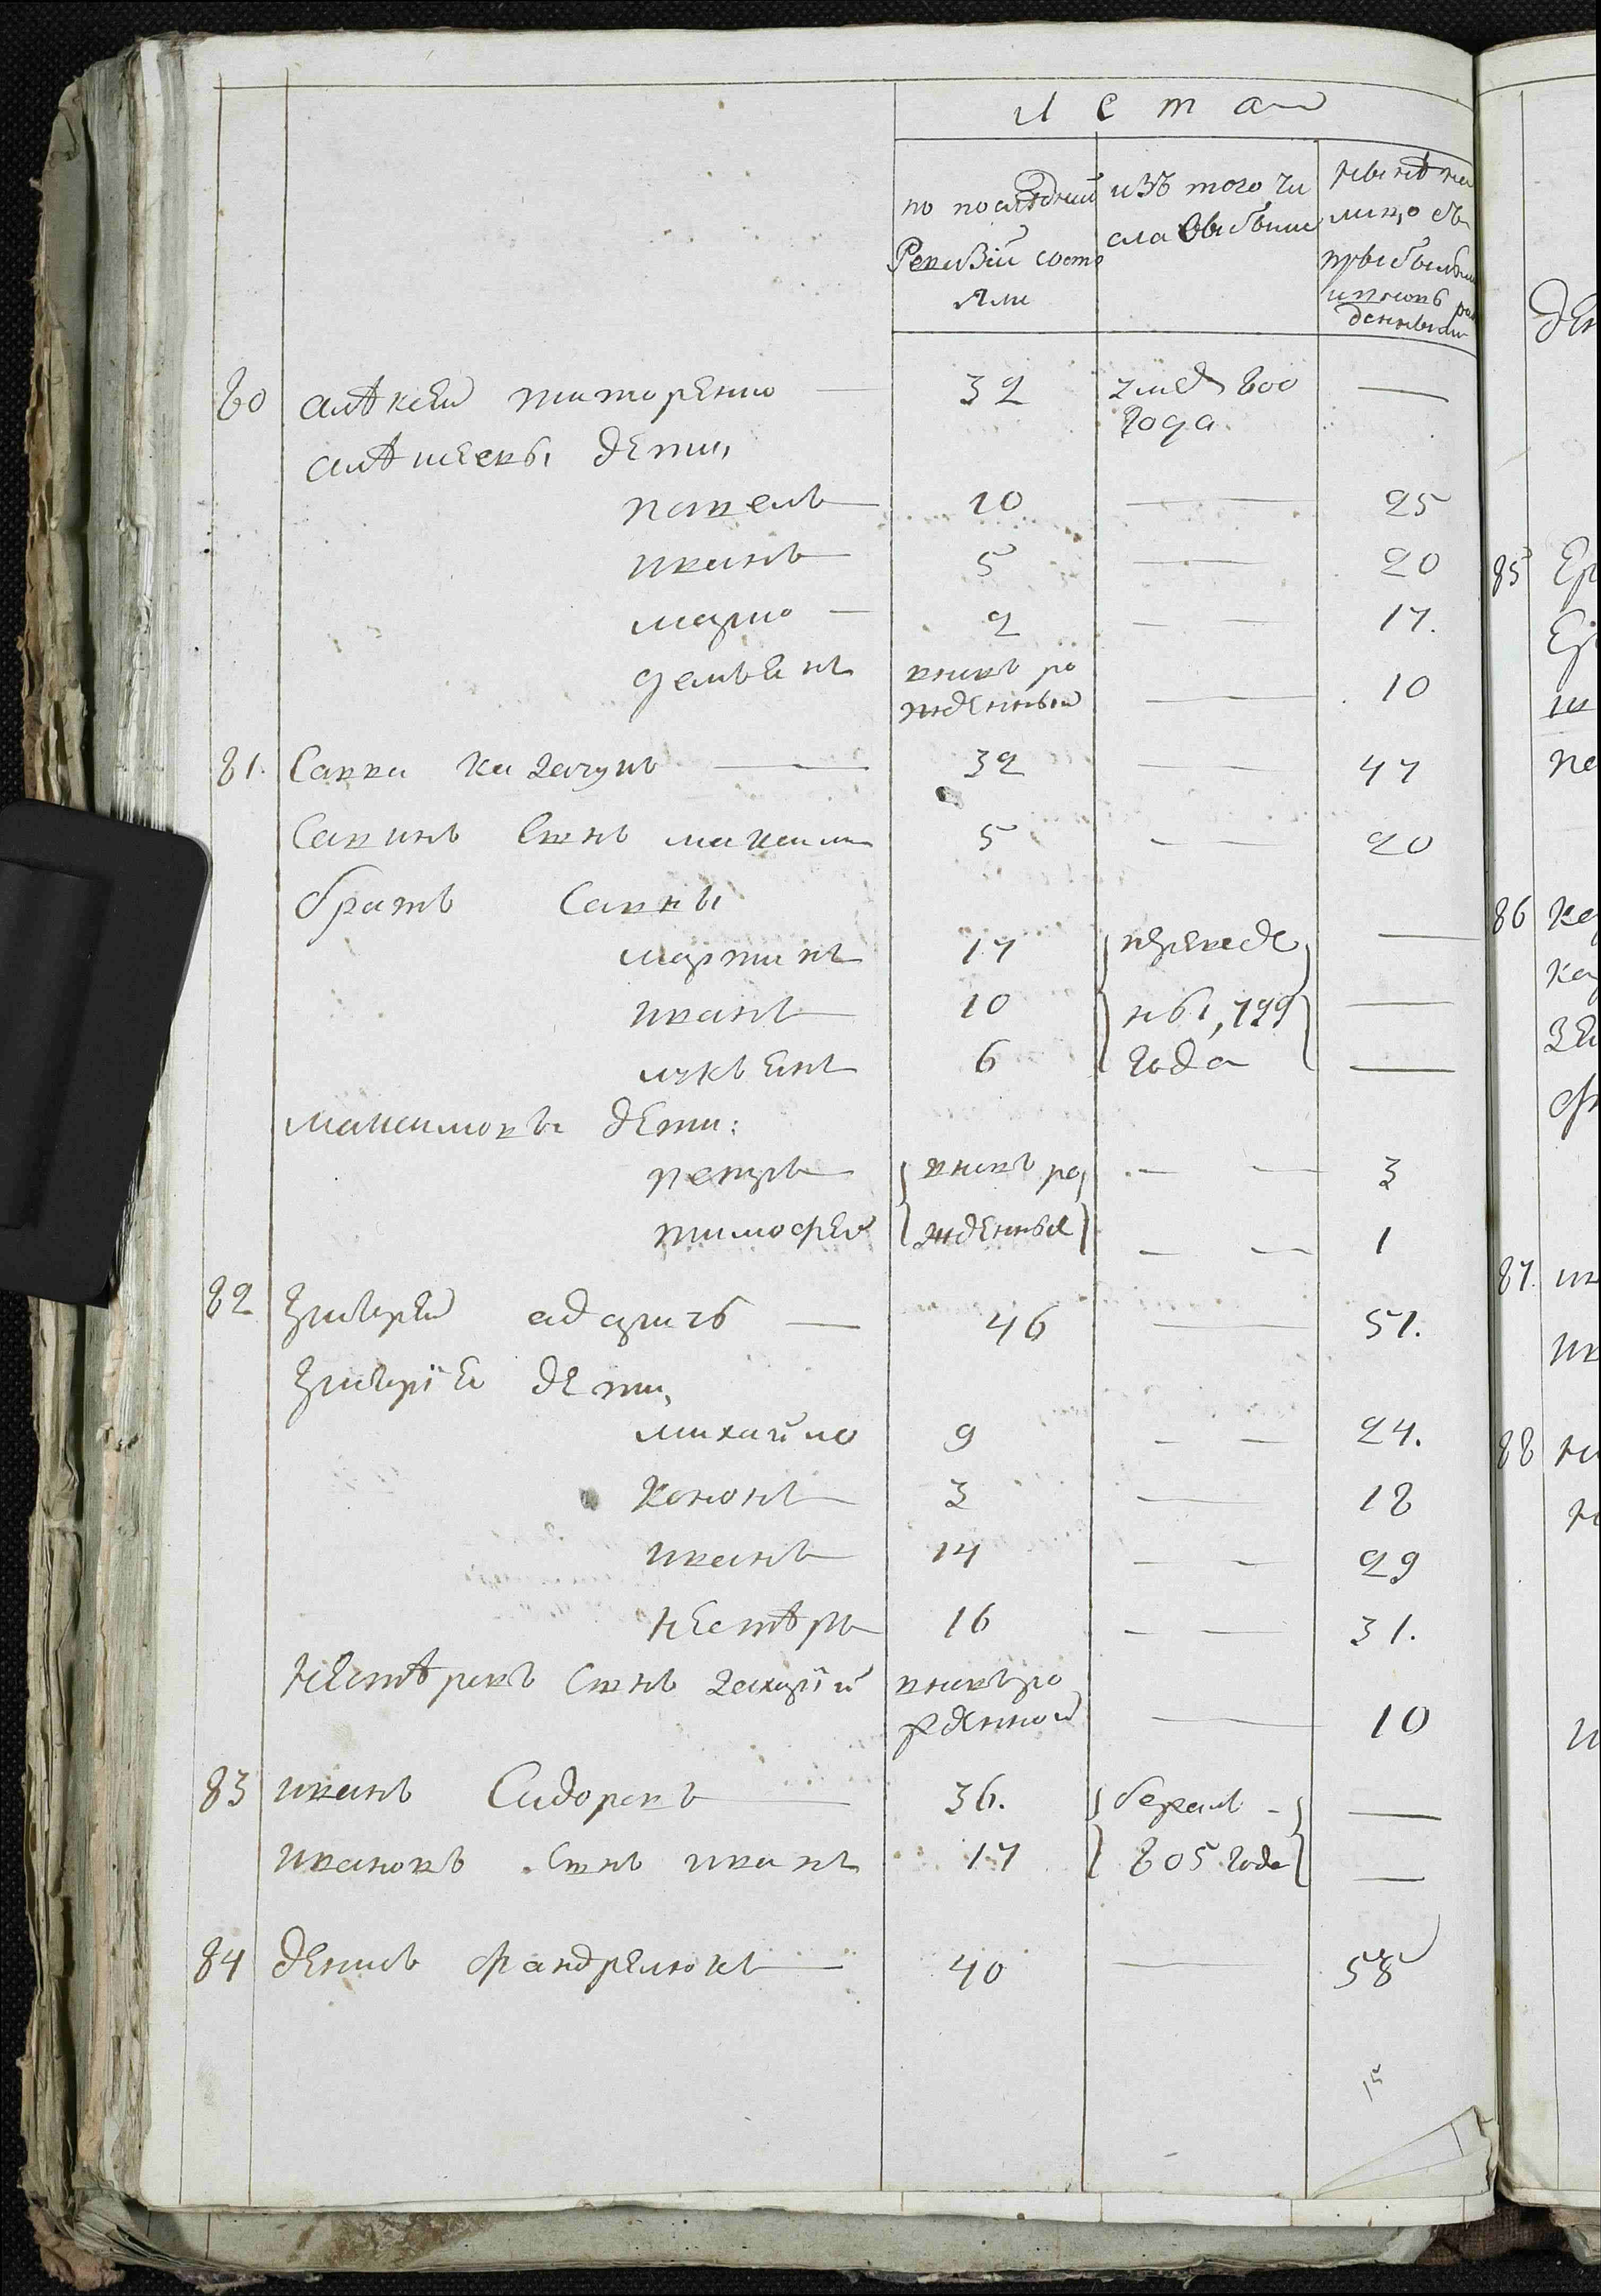 лета
по последней
Ревизии состо
яли
изъ того чи
сла выбыли
ныне на
лицо съ
прибылыми
и вновь ро
жденными
80 алѣксей титоренко — 32 умеръ 800 —
года
алѣксеевы дети,
павелъ 10 — 25
иванъ 5 — 20
марко — 2 — 17.
демьянъ вновь ро
жденный — 10
81. Савва казачукъ — 32 — 47
Савинъ сынъ максимъ 5 — 20
братъ Саввы
мартинъ 17 переведе —
иванъ 10 ны, 799 —
лукьянъ 6 года —
максимовы дети:
петръ вновь ро — 3
тимофей жденныя — 1
82 григорей — 46 — 51.
григорiя дети,
михайло 9 — 24.
кононъ 3 — 18
иванъ 14 — 29
нестѣръ 16 — 31.
нестѣровъ сынъ захарiй вновь ро
жденной — 10
83 иванъ Сидоровъ — 36. бежалъ —
ивановъ сынъ иванъ 17 805 года —
84 денисъ фандрелюкъ — 40 — 58
15
85
86
87.
88